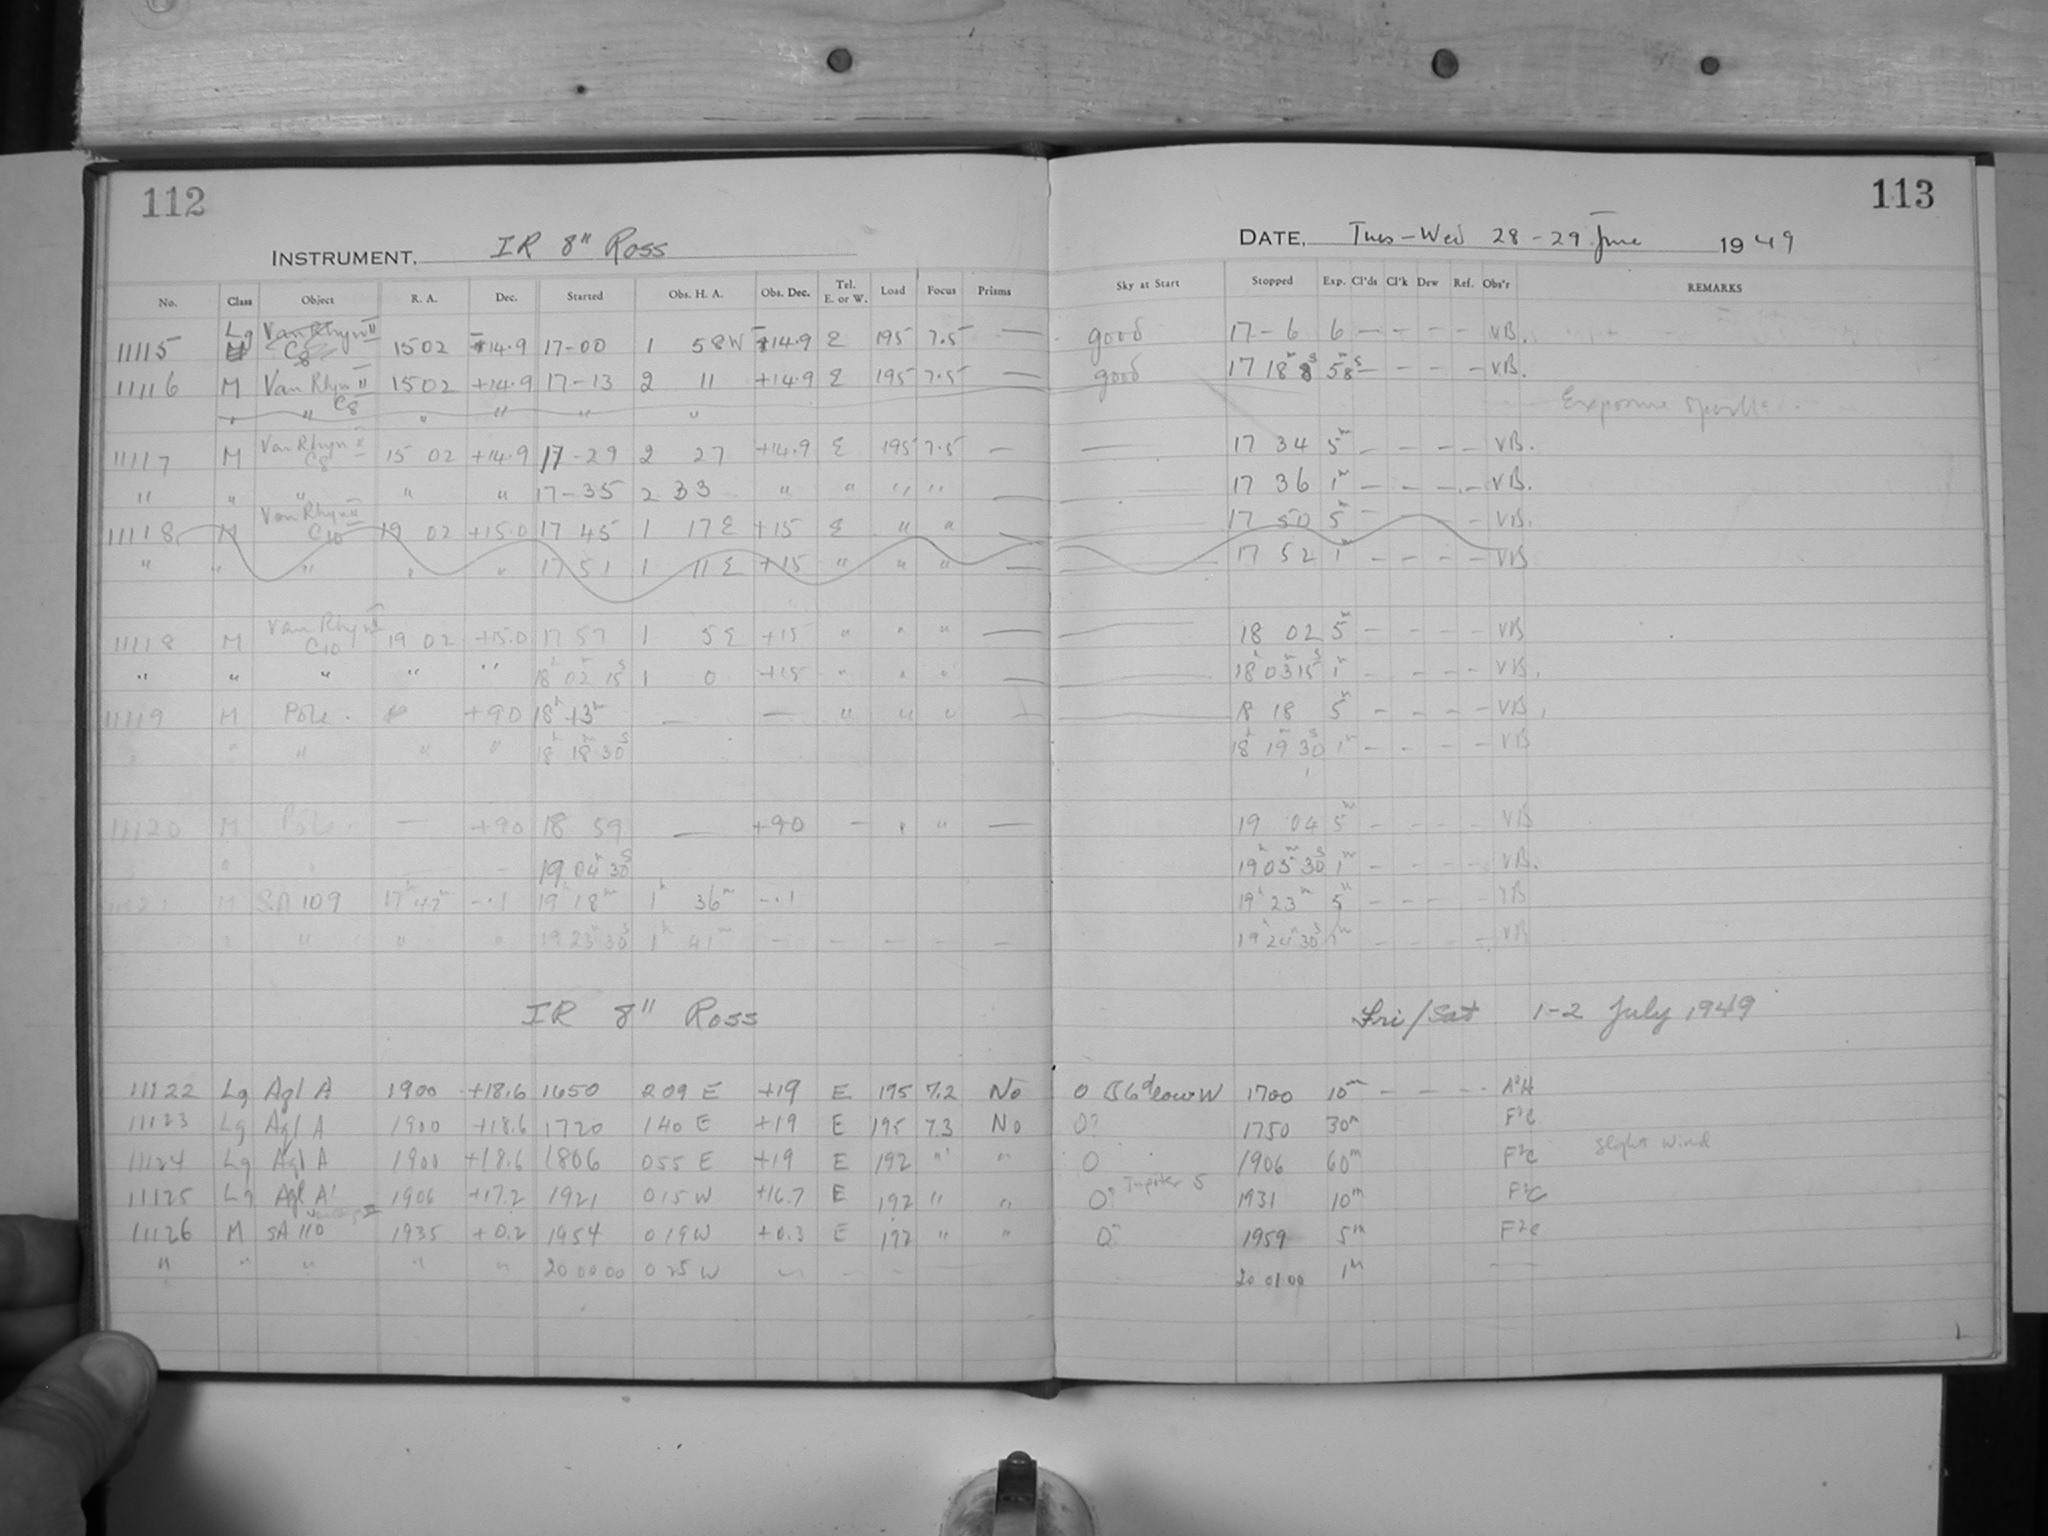 112
113
INSTRUMENT. IR 8" Ross
DATE, Tues-Wed 28-29 June 1949
No. Class Object R. A. Dec. Started Obs. H. A. Obs. Dec. Tel. E. or W. Load Focus Prisms Sky at Start Stopped Exp. Cl'ds Cl'k Dew Ref. Obs'r REMARKS
11115 Lg Van Rhyn II C8 1502 +14.9 17-00 1 58W +14.9 E 195 7.5 — good 17-6 6 — — — — VB.
11116 M Van Rhyn II C8 1502 +14.9 17-13 2 11 +14.9 E 195 7.5 — good 17 18 8s 5m 8s — — — — VB.
" " " " " "
Exposure spoilt.
11117 M Van Rhyn II C8 15 02 +14.9 17-29 2 27 +14.9 E 195 7.5 — — 17 34 5m — — — — VB.
" " " " " 17-35 2 33 " " " " — — 17 36 1m — — — — VB.
11118 M Van Rhyn II C10 19 02 +15.0 17 45 1 17 E +15 E " " — — 17 50 5m — — VB.
" " " " " 17 51 1 11 E +15 " " " — — 17 52 1m — — — — VB
11118 M Van Rhyn II C10 19 02 +15.0 17 57 1 5 E +15 " " " — — 18 02 5m — — — — VB
" " " " " 18h 02m 15s 1 0 +15 " " " — — 18h 03m 15s 1m — — — — VB.
11119 M Pole. +90 18h 13m — — " " " — — 18 18 5m — — — — VB.
" " " " " 18h 18m 30s 18h 19m 30s 1m — — — — VB
11120 M Pole. — +90 18 59 — +90 — " " — 19 04 5m — — — — VB
" " — — 19 04m 30s 19h 05m 30s 1m — — — — VB.
11121 M SA 109 17h 42m -.1 19h 18m 1h 36m -.1 19h 23m 5m — — — — VB
" " " " 19 23m 30s 1h 41m — — — — — 19h 24m 30s 1m — — — — VB
IR 8" Ross Fri/Sat 1-2 July 1949
11122 Lg Aql A 1900 +18.6 1650 2 09 E +19 E 195 7.2 No 1700 10m — — — —
11123 Lg Aql A 1900 +18.6 1720 1 40 E +19 E 195 7.3 No O? 1750 30m F²C
slight wind
11124 Lg Aql A 1900 +18.6 1806 0 55 E +19 E 192 " " O 1906 60m F²C
11125 Lg Aql A' 1906 +17.2 1921 0 15 W +16.7 E 192 " " O? Jupiter S 1931 10m F²C
11126 M SA 110 1935 +0.2 1954 0 19 W +0.3 E 192 " " 1959 5m F²C
" " " " " 20 00 00 0 25 W — — — 20 01 00 1m —